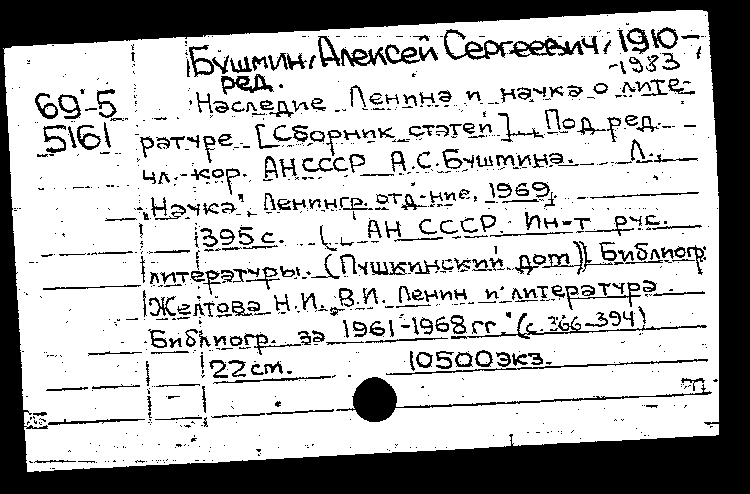 Бушмин, Алексей Сергеевич, 1910-
-1983
ред.
69-5
5161
Наследие Ленина и наука о лите-
ратуре [Сборник статей]. Под ред.
чл.-кор. АН СССР А.С. Бушмина. Л.,
"Наука", Ленингр. отд-ние, 1969.
395 с. (АН СССР. Ин-т рус.
литературы. (Пушкинский дом)). Библиогр.
Желтова Н.И. "В.И. Ленин и литература.
Библиогр. за 1961-1968 гг." (с. 366-394)
22 см. 10500 экз.